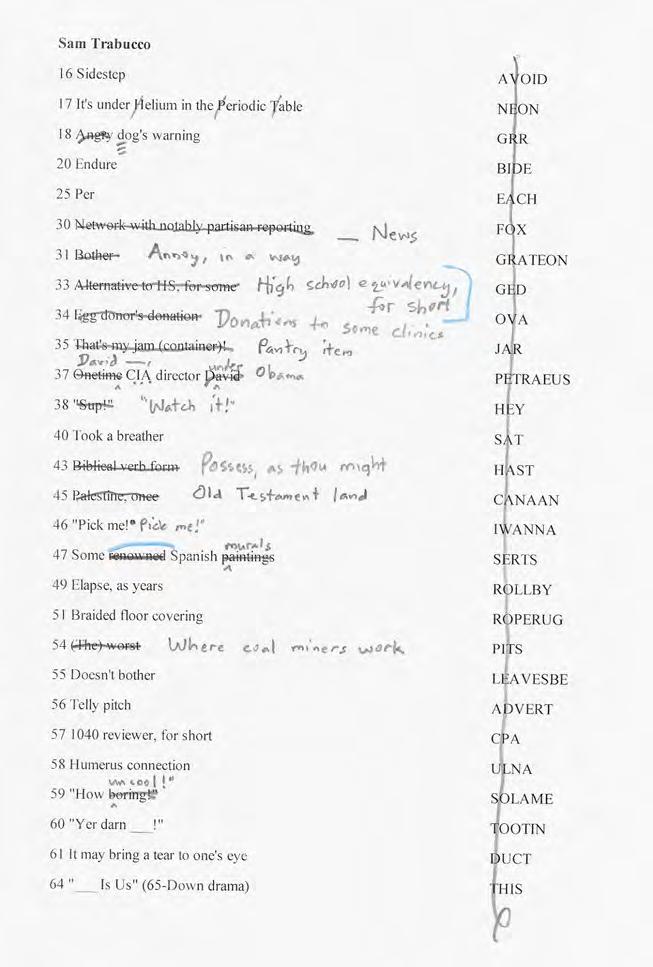 Sam Trabucco
16 Sidestep AVOID
17 It's under Helium in the Periodic Table NEON
18 Angry dog's warning GRR
20 Endure BIDE
25 Per EACH
30 Network with notably partisan reporting __ News FOX
31 Bother Annoy, in a way GRATEON
33 Alternative to HS, for some High school equivalency, for short GED
34 Egg donor's donation Donations to some clinics OVA
35 That's my jam (container)! Pantry item JAR
David —,
37 Onetime CIA director David under Obama PETRAEUS
38 "Sup!" "Watch it!" HEY
40 Took a breather SAT
43 Biblical verb form Possess, as thou might HAST
45 Palestine, once Old Testament land CANAAN
46 "Pick me!" Pick me!" IWANNA
47 Some renowned Spanish paintings murals SERTS
49 Elapse, as years ROLLBY
51 Braided floor covering ROPERUG
54 (The) worst Where coal miners work PITS
55 Doesn't bother LEAVESBE
56 Telly pitch ADVERT
57 1040 reviewer, for short CPA
58 Humerus connection ULNA
uncool!"
59 "How boring!" SOLAME
60 "Yer darn ___!" TOOTIN
61 It may bring a tear to one's eye DUCT
64 "___ Is Us" (65-Down drama) THIS